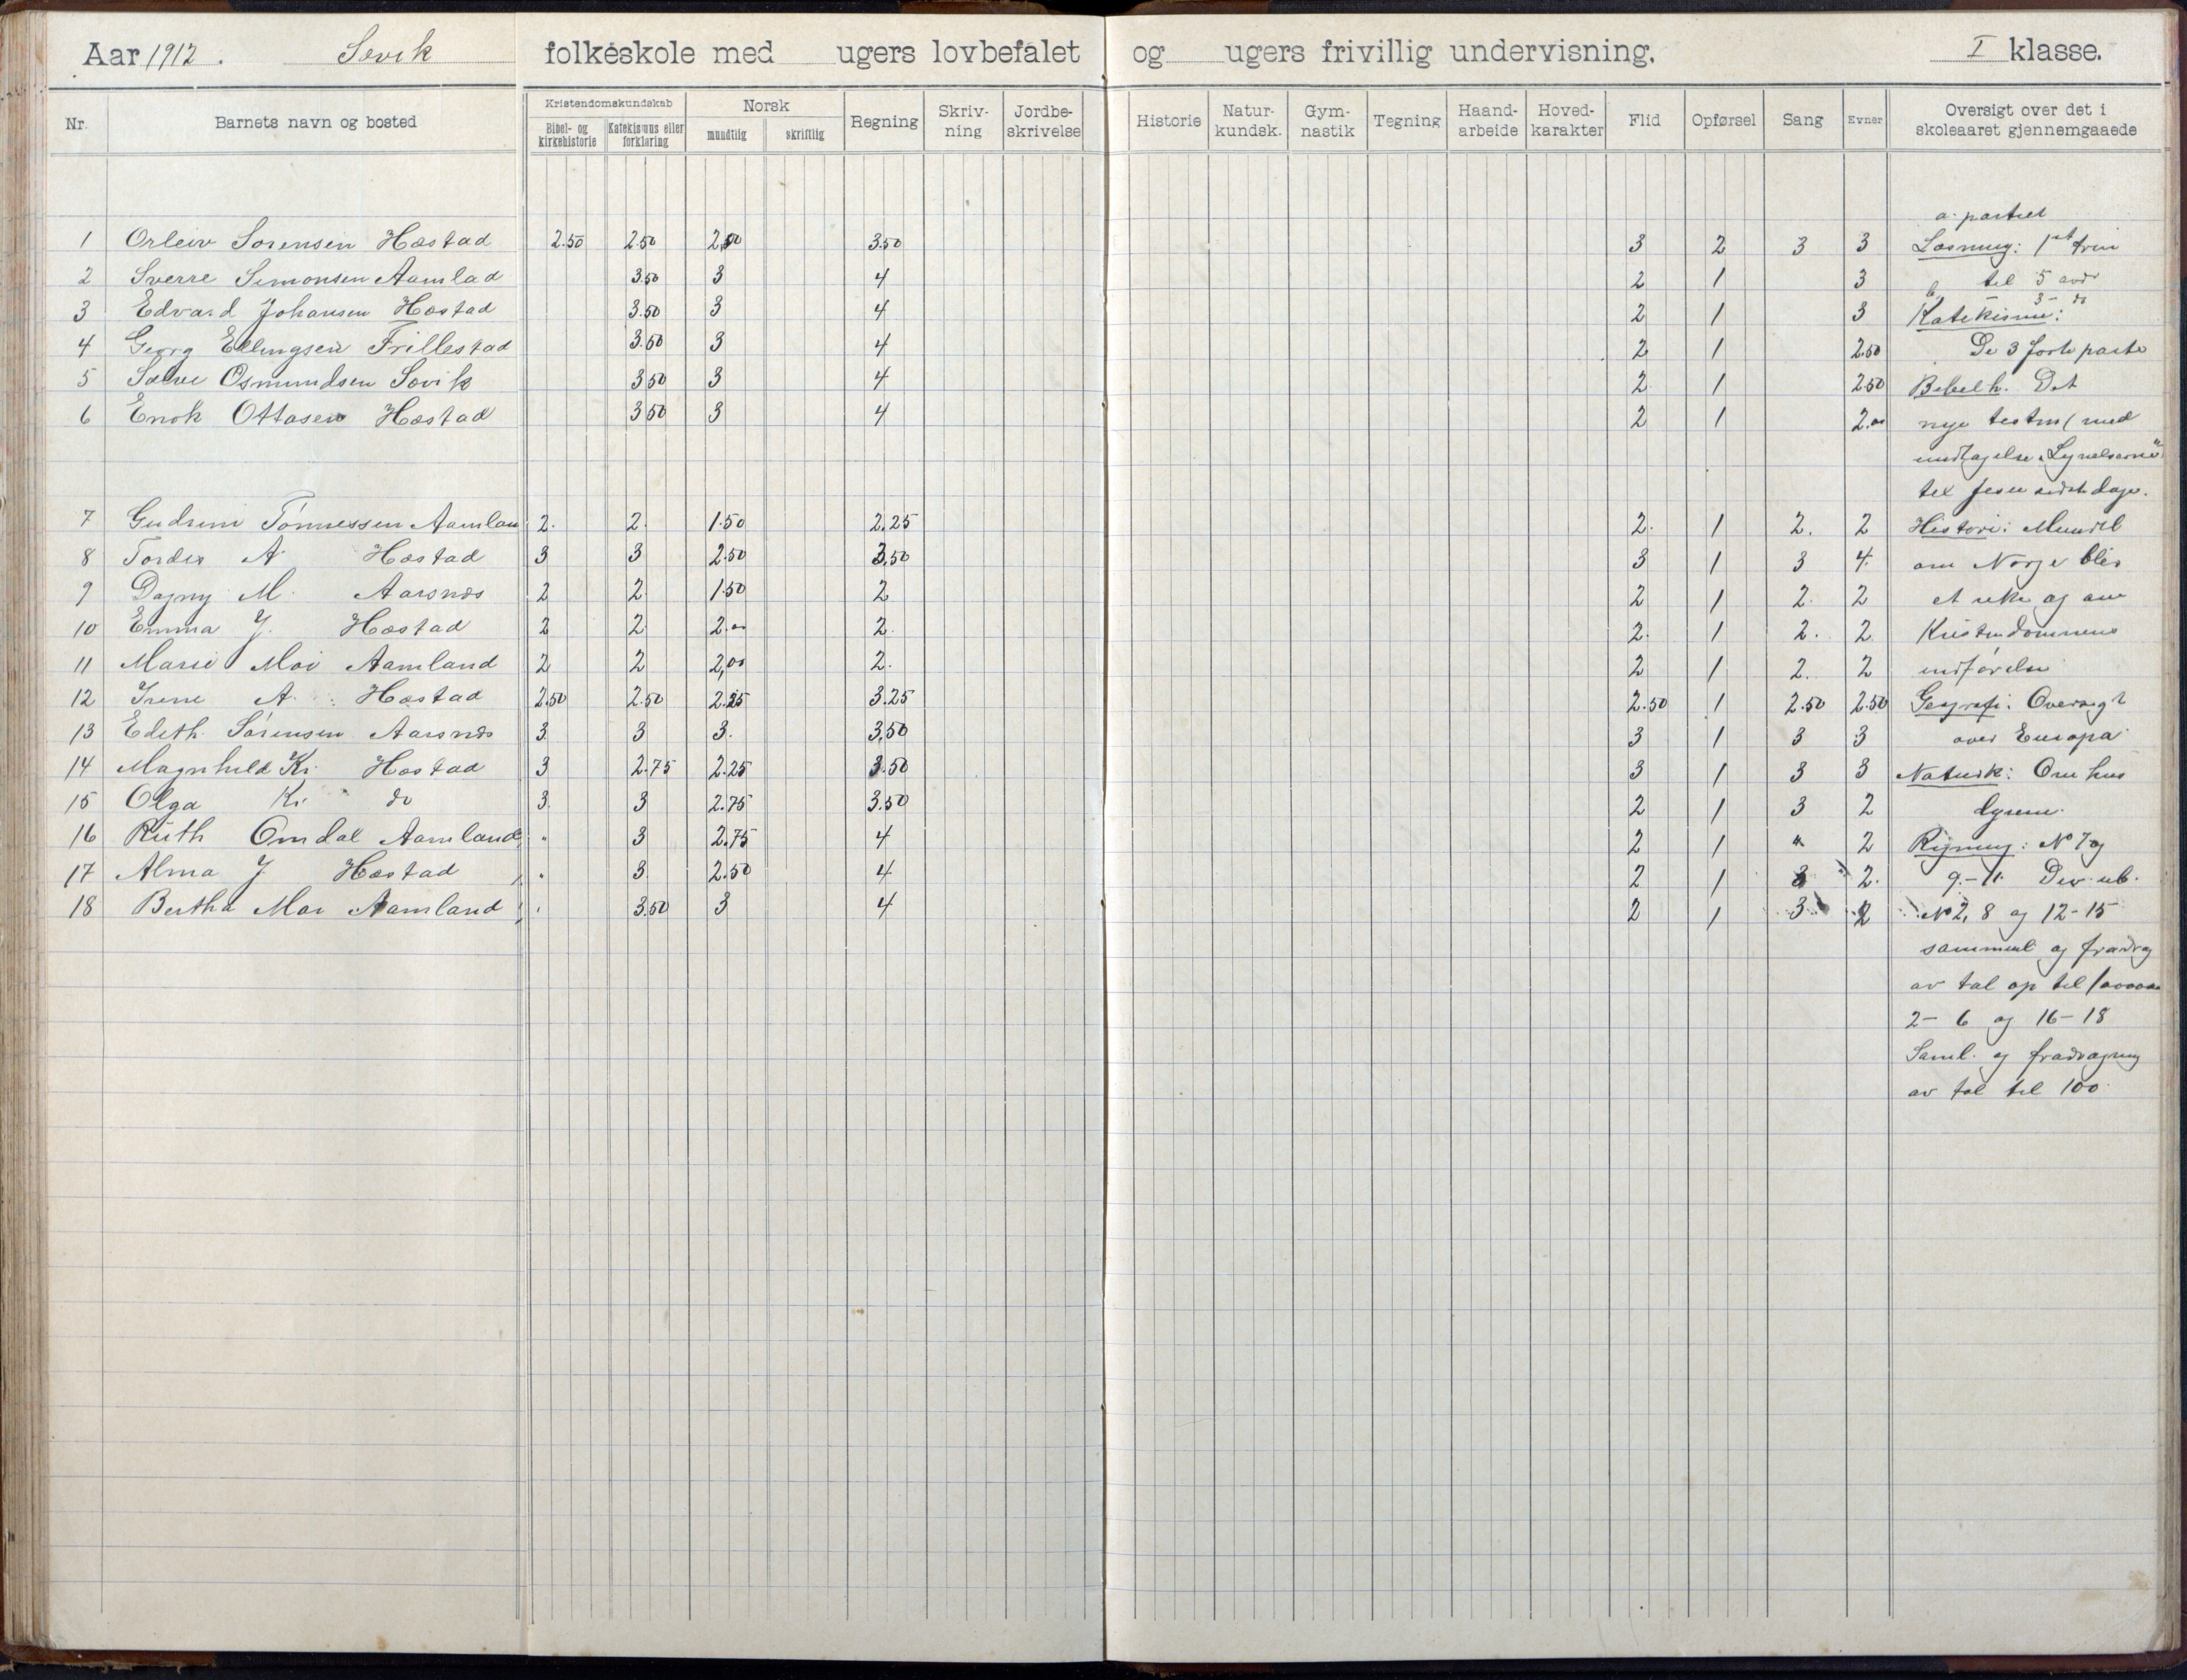 Aar 1912. Søvik folkeskole med ugers lovbefalet og ugers frivillig undervisning. I klasse.
Nr. Barnets navn og bosted Kristendomskundskab Bibel- og kirkehistorie Katekismus eller forklaring Norsk mundtlig skriftlig Regning Skriv-ning Jordbe-skrivelse Historie Natur-kundsk. Gym-nastik Tegning Haand-arbeide Hoved-karakter Flid Opførsel Sang Evner Oversigt over det i skoleaaret gjennemgaaede
a. partiet
1 Orleiv Sørensen Hæstad 2.50 2.50 2,50 3.50 3 2 3 3 Læsning: 1st trin
2 Sverre Simonsen Aamlad 3.50 3 4 2 1 3 til 5
3 Edvard Johansen Hæstad 3.50 3 4 2 1 3 Katekisme:
4 Georg Ellingsen Frillestad 3.50 3 4 2 1 2.50 De 3 første parte
5 Salve Osmundsen Søvik 3.50 3 4 2 1 2.50 Bibelh. Det
6 Enok Ottosen Hæstad 3.50 3 4 2 1 2.00 nye testm (med
undtagelse
til Jesu sidste dage.
7 Gudrun Tønnessen Aamlan 2. 2. 1.50 2.25 2. 1 2. 2 Historie: Mundtl
8 Tordis A. Hæstad 3 3 2.50 3,50 3 1 3 4. om Norge blev
9 Dagny M. Aarsnæs 2 2 1.50 2 2 1 2. 2 et rike og om
10 Emma J. Hæstad 2 2 2.00 2. 2. 1 2. 2 Kristendommens
11 Marie Moi Aamland 2 2 2,00 2. 2 1 2. 2 indførelse
12 Irene A. Hæstad 2.50 2.50 2.25 3.25 2.50 1 2.50 2.50 Geografi: Oversigt
13 Edith Sørensen Aarsnæs 3 3 3. 3,50 3 1 3 3 over Europa
14 Magnhild Kr. Hæstad 3 2.75 2.25 3.50 3 1 3 3 Naturk: Om hus
15 Olga Kr. do 3. 3 2.75 3.50 2 1 3 2 dyrene.
16 Ruth Omdal Aamland " 3 2.75 4 2 1 " 2 Regning: No 7 og
17 Alma J Hæstad " 3. 2.50 4 2 1 3 2. 9.-11.
18 Bertha Moi Aamland " 3.50 3 4 2 1 3 2 No 2, 8 og 12-15
sammenl og fradrag
av tal op til
2- 6 og 16-18
Saml. og fradragning
av tal til 100.